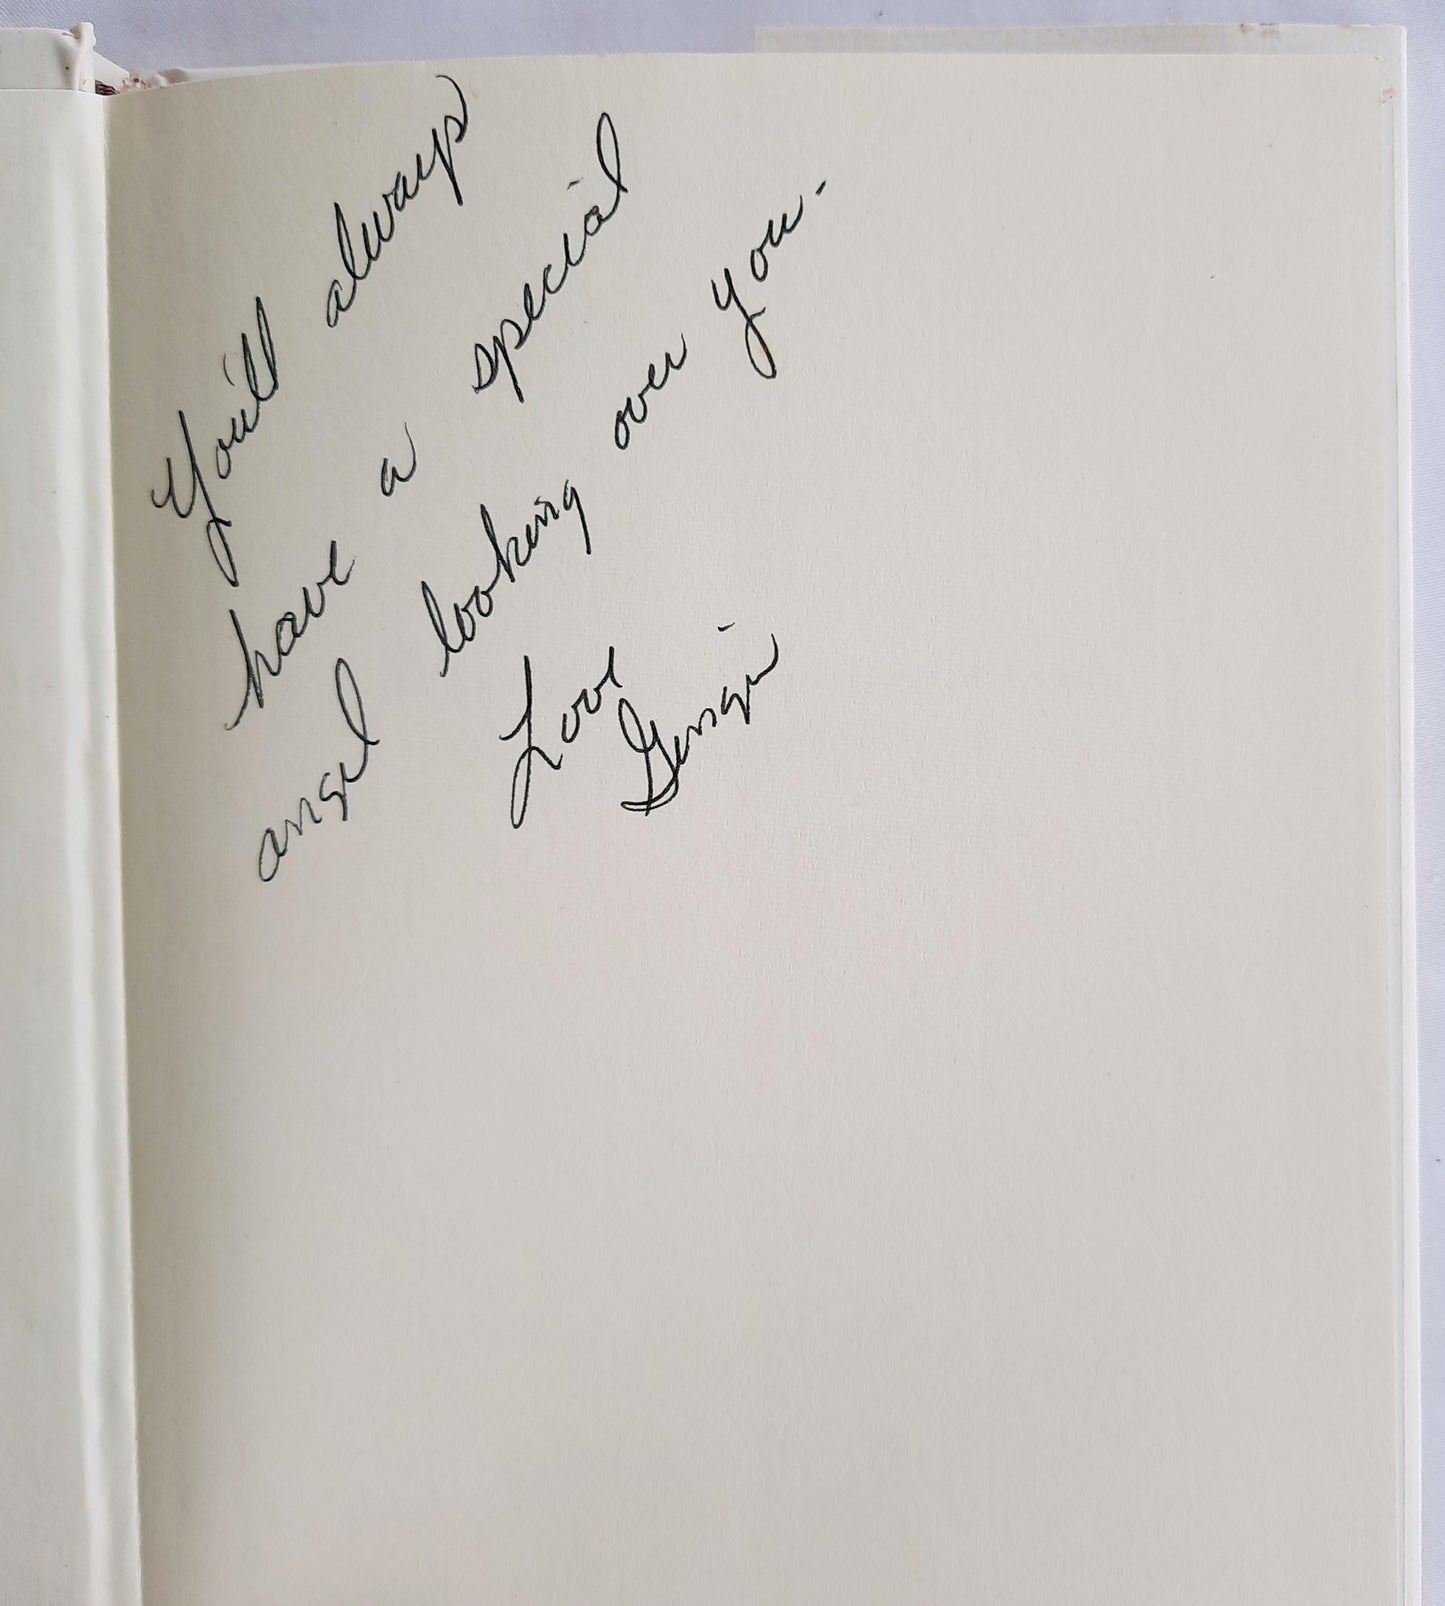 You'll always
have a special
angel looking over you.
Love